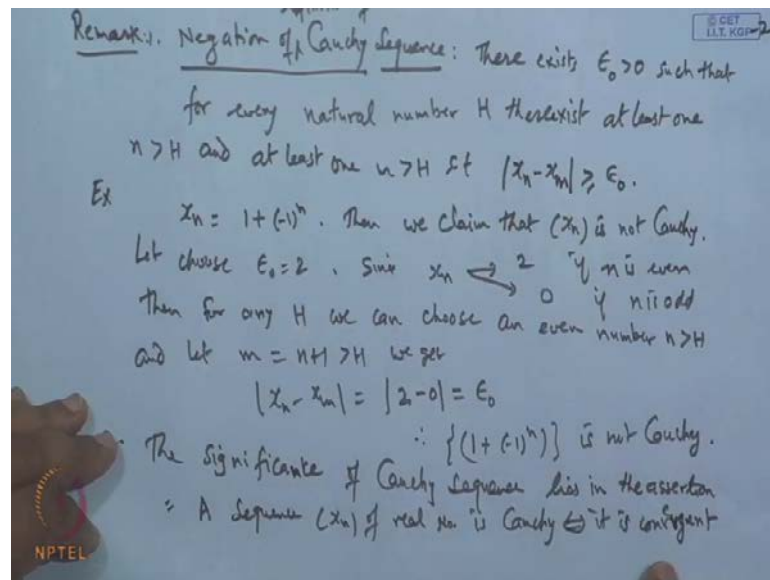 © CET
I.I.T. KGP
Remark:. Negation of Cauchy Sequence: There exists ε₀>0 such that
for every natural number H there exist at least one
n>H and at least one m>H st |xₙ-xₘ| ≥ ε₀.
Ex
xₙ = 1+(-1)ⁿ. Then we claim that (xₙ) is not Cauchy.
Let choose ε₀=2. Since xₙ → 2 if n is even
→ 0 if n is odd
Then for any H we can choose an even number n>H
and let m = n+1 >H we get
|xₙ-xₘ| = |2-0| = ε₀
∴ {(1+(-1)ⁿ)} is not Cauchy.
The Significance of Cauchy Sequence lies in the assertion
" A Sequence (xₙ) of real No. is Cauchy ⇔ it is convergent
NPTEL